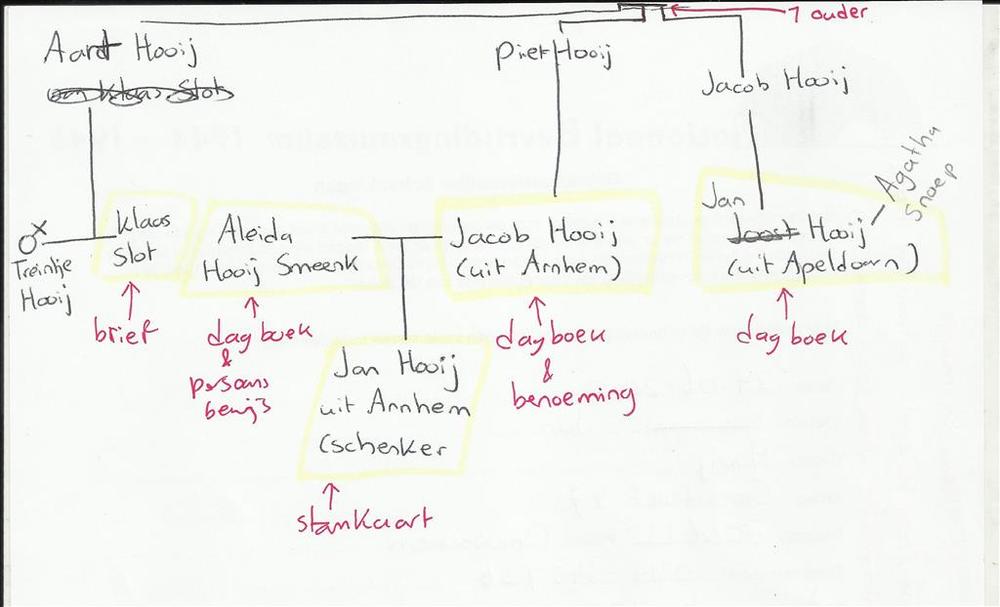 1 ouder
Aart Hooij
Piet Hooij
Jacob Hooij
Treintje
Hooij
Klaas
Slot
Aleida
Hooij Smeenk
Jacob Hooij
(uit Arnhem)
Jan
Joost Hooij
(uit Apeldoorn)
Agatha
Snoep
brief
dagboek
&
persoons
bewijs
dagboek
&
benoeming
dagboek
Jan Hooij
uit Arnhem
(schenker
stamkaart